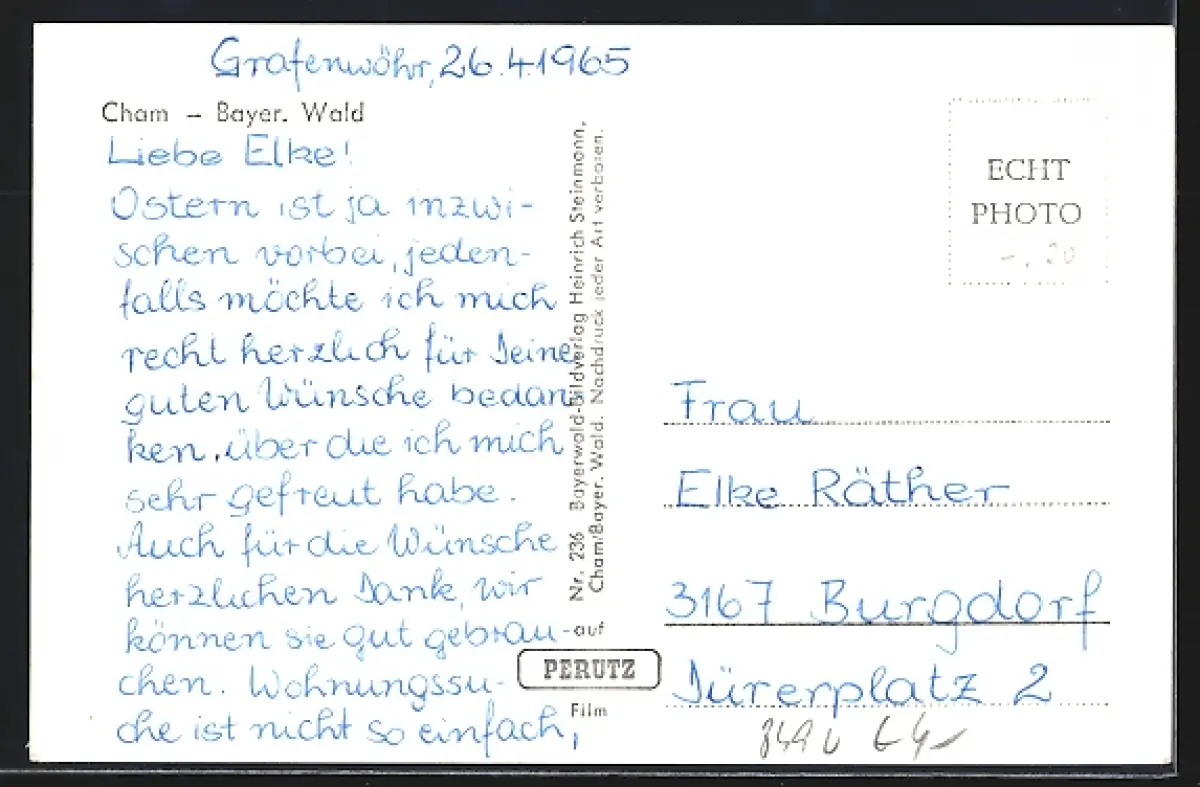 Grafenwöhr, 26.4.1965
Cham – Bayer. Wald
Liebe Elke!
Ostern ist ja inzwi-
schen vorbei, jeden-
falls möchte ich mich
recht herzlich für Deine
guten Wünsche bedan
ken, über die ich mich
sehr gefreut habe.
Auch für die Wünsche
herzlichen Dank, wir
können sie gut gebrau-
chen. Wohnungssu-
che ist nicht so einfach,
Nr. 236 Bayerwald-Bildverlag Heinrich Steinmann,
Cham/Bayer. Wald. Nachdruck jeder Art verboten.
auf
PERUTZ
Film
ECHT
PHOTO
-.20
Frau
Elke Räther
3167 Burgdorf
Dürerplatz 2